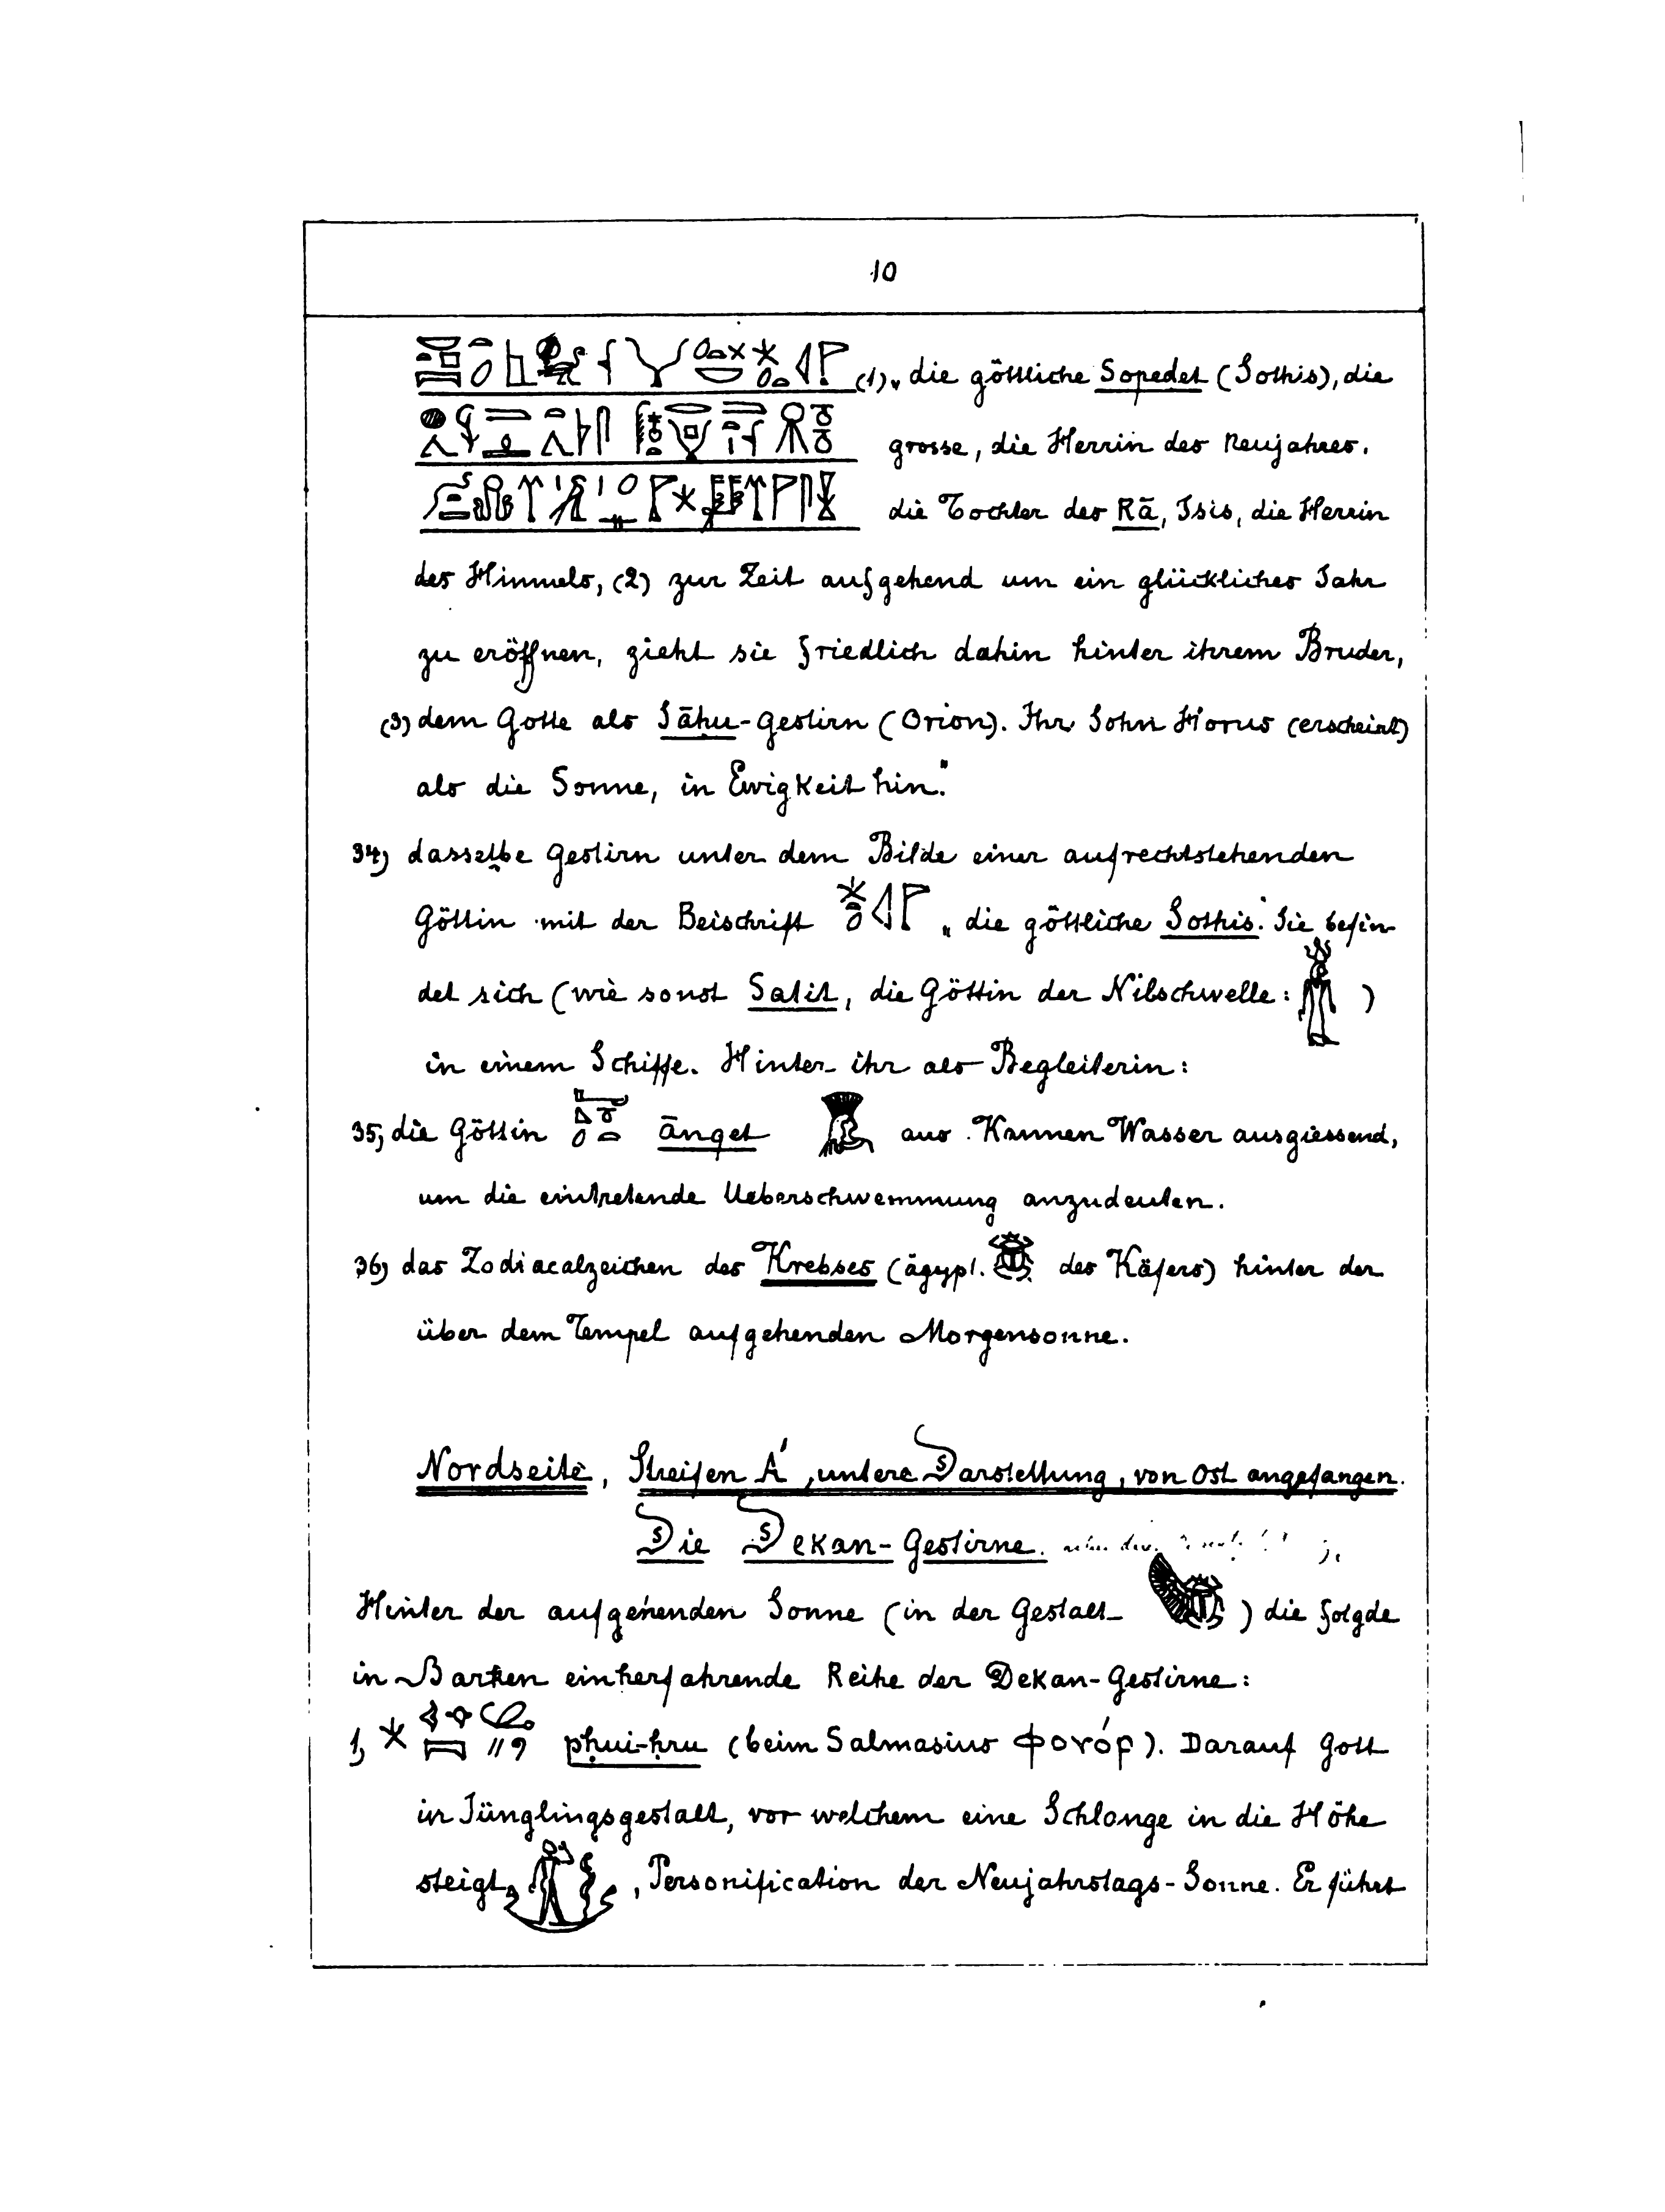 10
(1) „die göttliche Sopedet (Sothis), die
grosse, die Herrin des Neujahres.
die Tochter des Rā, Isis, die Herrin
des Himmels, (2) zur Zeit aufgehend um ein glückliches Jahr
zu eröffnen, zieht sie friedlich dahin hinter ihrem Bruder,
(3) dem Gotte als Sāḥu-gestirn (Orion). Ihr Sohn Horus (erscheint)
als die Sonne, in Ewigkeit hin."
34) dasselbe Gestirn unter dem Bilde einer aufrechtstehenden
Göttin mit der Beischrift „die göttliche Sothis". Sie befin-
det sich (wie sonst Satit, die Göttin der Nilschwelle: )
in einem Schiffe. Hinter ihr als Begleiterin:
35, die Göttin ānqet aus Kannen Wasser ausgiessend,
um die eintretende Ueberschwemmung anzudeuten.
36) das Zodiacalzeichen des Krebses (ägypt. des Käfers) hinter der
über dem Tempel aufgehenden Morgensonne.
Nordseite, Streifen A', untere Darstellung, von Ost angefangen.
Die Dekan-Gestirne.
Hinter der aufgehenden Sonne (in der Gestalt ) die folgde
in Barken einherfahrende Reihe der Dekan-Gestirne:
1, pḥui-ḥru (beim Salmasius Φονόρ). Darauf Gott
in Jünglingsgestalt, vor welchem eine Schlange in die Höhe
steigt, , Personification der Neujahrstags-Sonne. Er führt